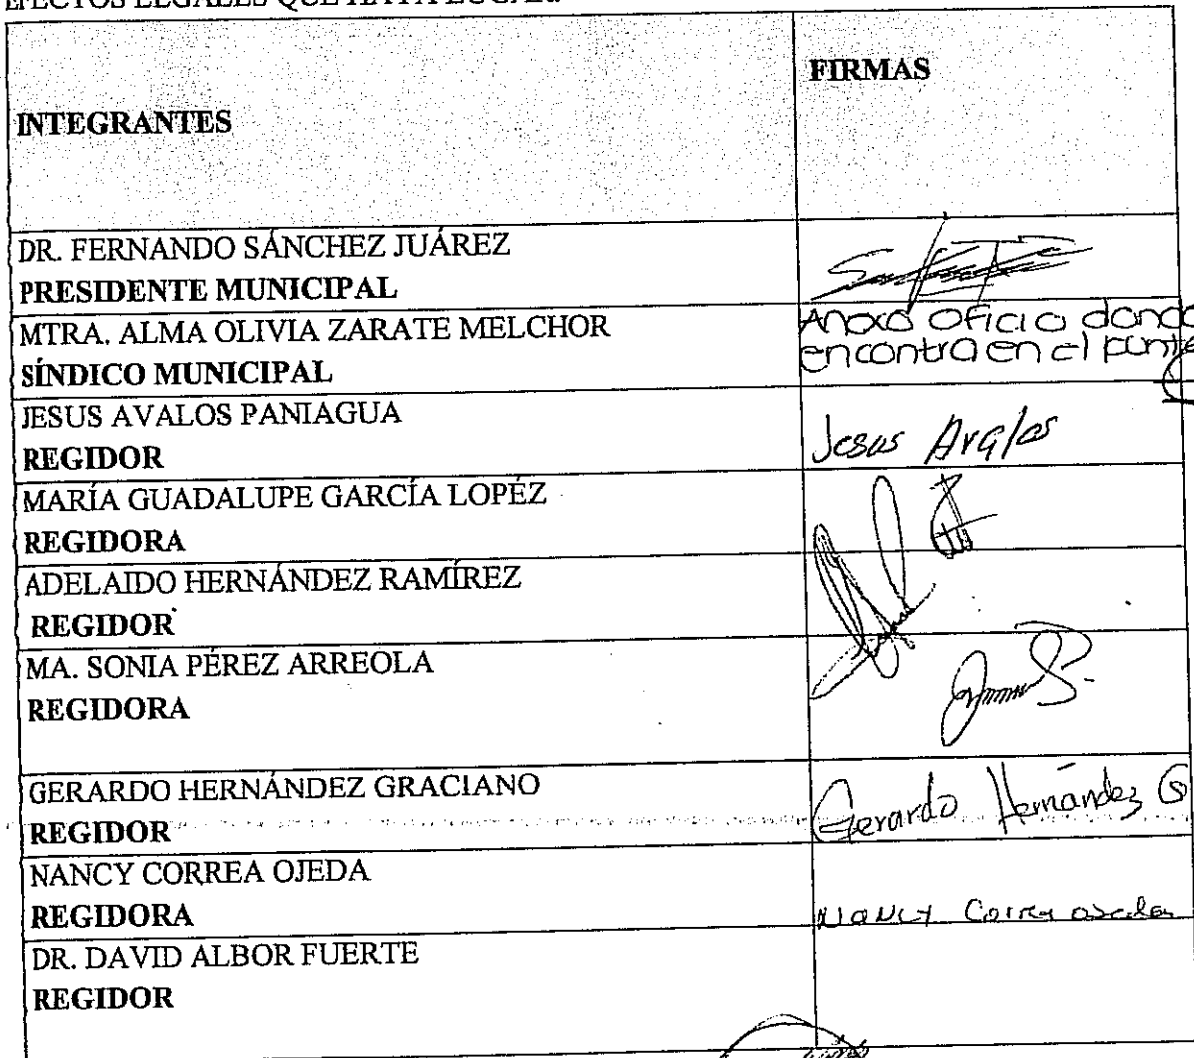 EFECTOS LEGALES QUE HAYA LUGAR.
INTEGRANTES
FIRMAS
DR. FERNANDO SÁNCHEZ JUÁREZ
PRESIDENTE MUNICIPAL
MTRA. ALMA OLIVIA ZARATE MELCHOR
SÍNDICO MUNICIPAL
Anexo oficio donde
encontra en el punto
JESUS AVALOS PANIAGUA
REGIDOR
Jesus Avalos
MARÍA GUADALUPE GARCÍA LOPÉZ
REGIDORA
ADELAIDO HERNÁNDEZ RAMÍREZ
REGIDOR
MA. SONIA PÉREZ ARREOLA
REGIDORA
GERARDO HERNÁNDEZ GRACIANO
REGIDOR
Gerardo Hernández G
NANCY CORREA OJEDA
REGIDORA
Nancy Correa
DR. DAVID ALBOR FUERTE
REGIDOR